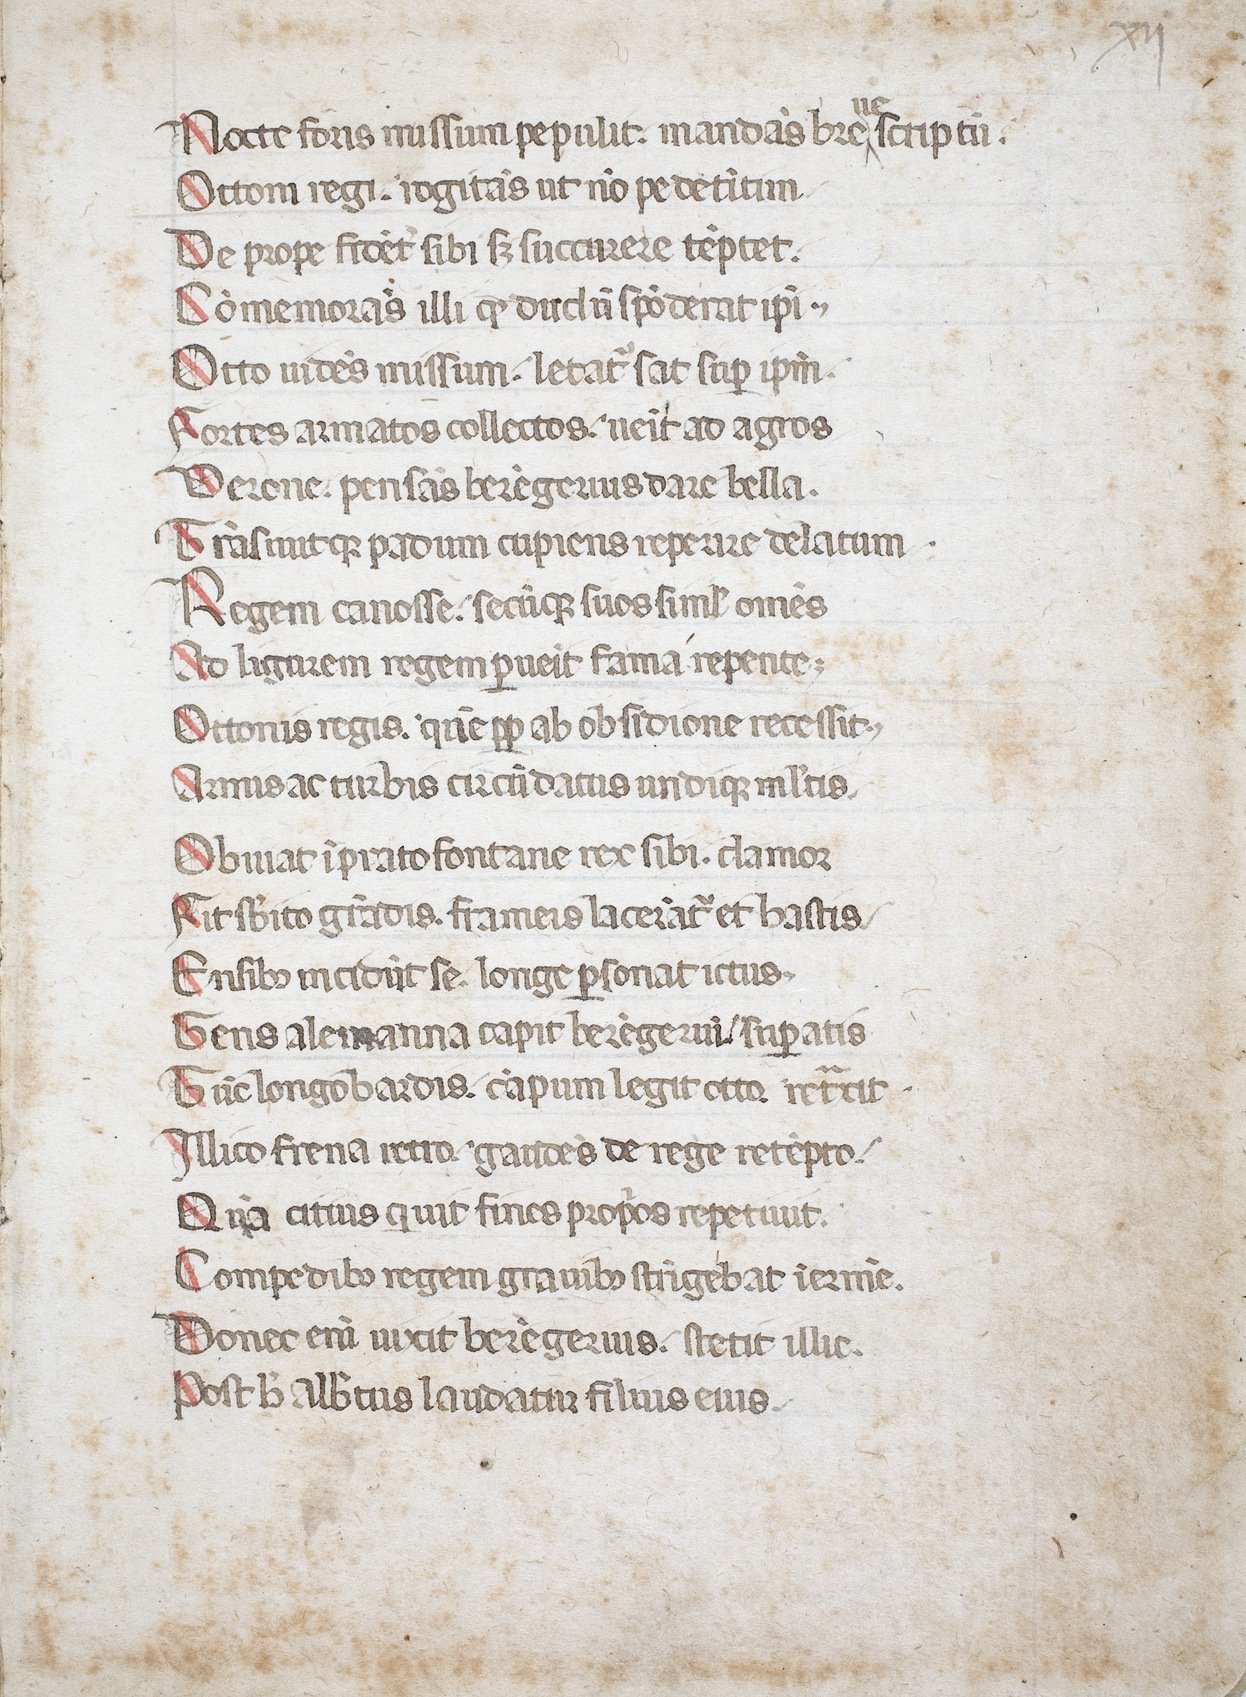 xij
Nocte foris missum pepulit. mandās breue scriptū.
Ottoni regi. rogitās ut nō pedetītim
De prope fidēt᷑ sibi sꝫ succurere tēptet.
Cōmemorās illi qͥ dudū spōderat ip̄i.,
Otto uidēs missum. letat᷑ sat suꝑ ip̄m.
Fortes armatos collectos. ueit ad agros
Verone. pensās berēgerius dare bella.
Trāsiuitqꝫ padum cupiens reperire delatum.
Regem canosse. secūqꝫ suos siml̄ omēs
Ad ligurem regem ꝑueit fama repente;
Ottonis regis. qui ē pp ab obsidione recessit.,
Armis ac turbis circūdatus undiqꝫ ml̄tis.
Obuiat ī prato fontane rex sibi. clamor
Fit sb̄ito grādis. frameis lacerāt᷑ et hastis
Ensibꝫ incidūt se. longe ꝑsonat ictus.
Gens alemanna capit berēgerium. suꝑatis
Tūc longobardis. cāpum legit otto. ret͛xit.
Illico frena retro. gaudēs de rege retēpto.
Quā citius quit fines prop̄os repetiuit.
Compedibꝫ regem grauibꝫ strīgēbat ī ermīe.
Donec enī uixit berēgerius. stetit illic.
Post h̄ alb̄tus laudatur filius eius.